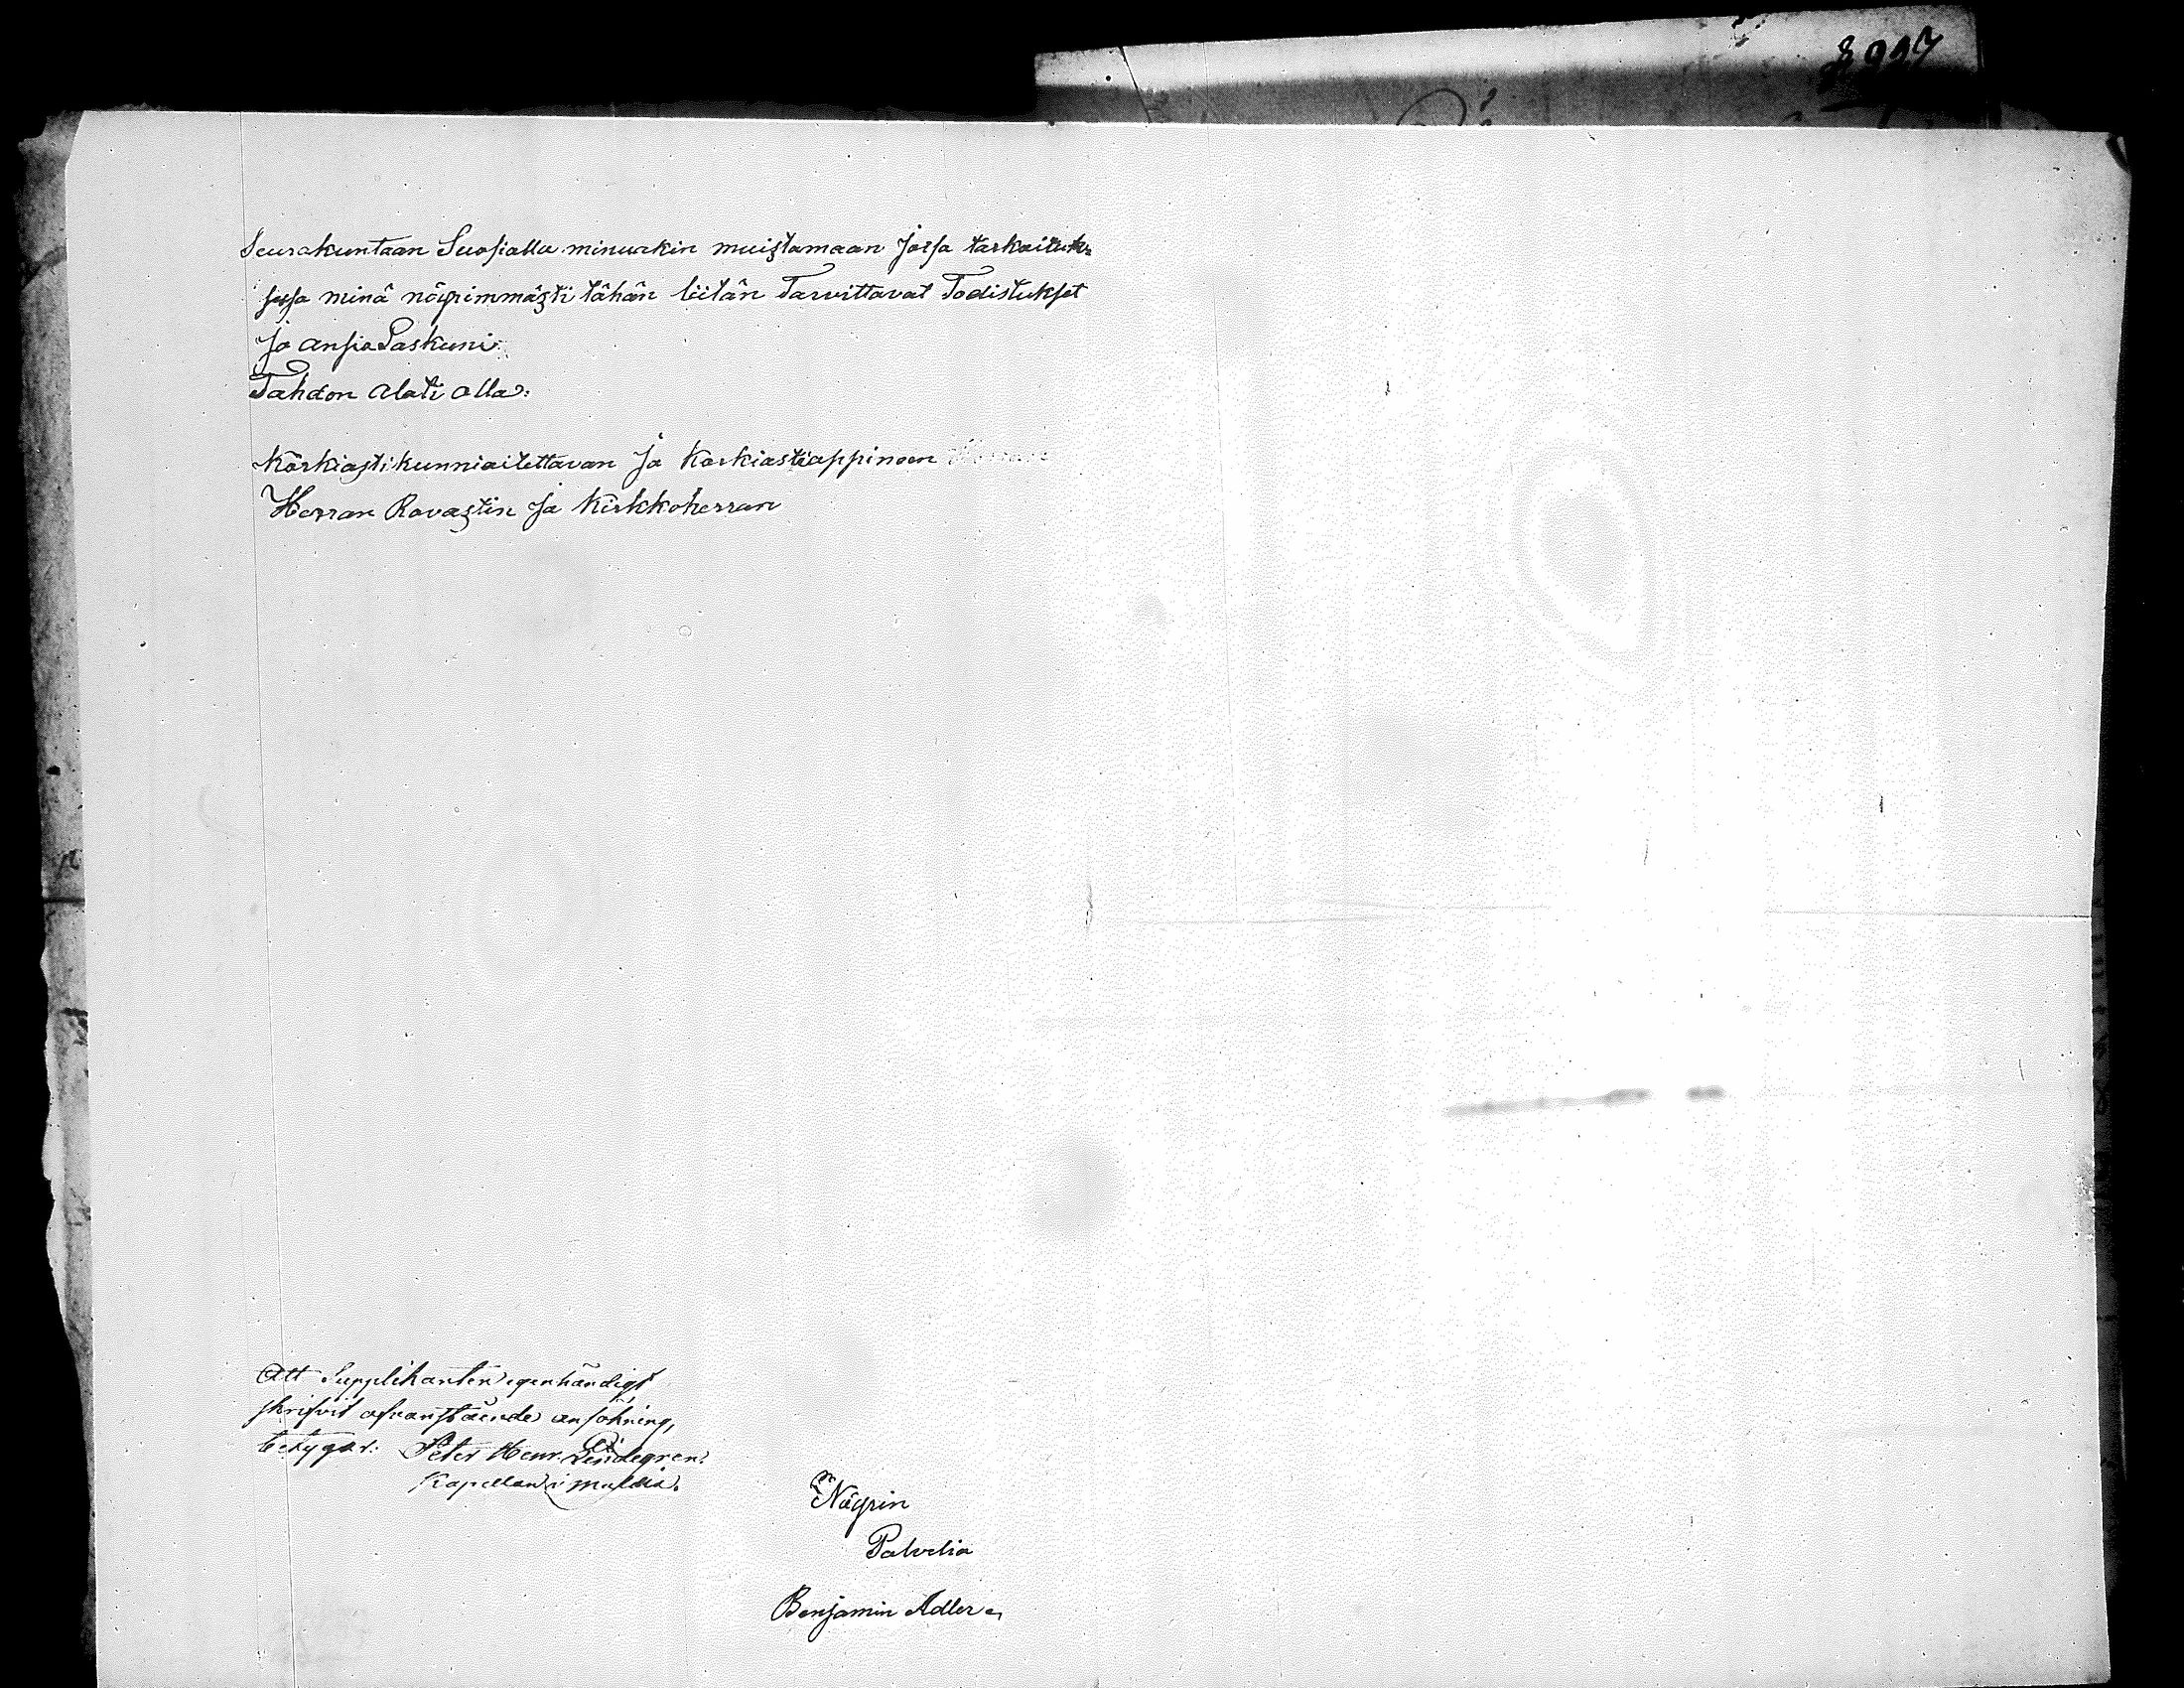 Seurakuntaan Suosialla minuakin muistamaan Jossa tarkoituk=
sessa minä nöyrimmästi tähän liitän Tarvittavat Todistukset
Ja ansio Laskuni.
Tahdon Alati olla:
Korkiasti kunniaitettavan Ja Korkiastioppineen
Herran Rovastin Ja Kirkkoherran
Att Supplikanten egenhändigt
skrifvit ofvanstående ansökning,
betygar: Peter Henr. Lindegren.
Kapellan i Multia.
Nöyrin
Palvelia
Benjamin Adler